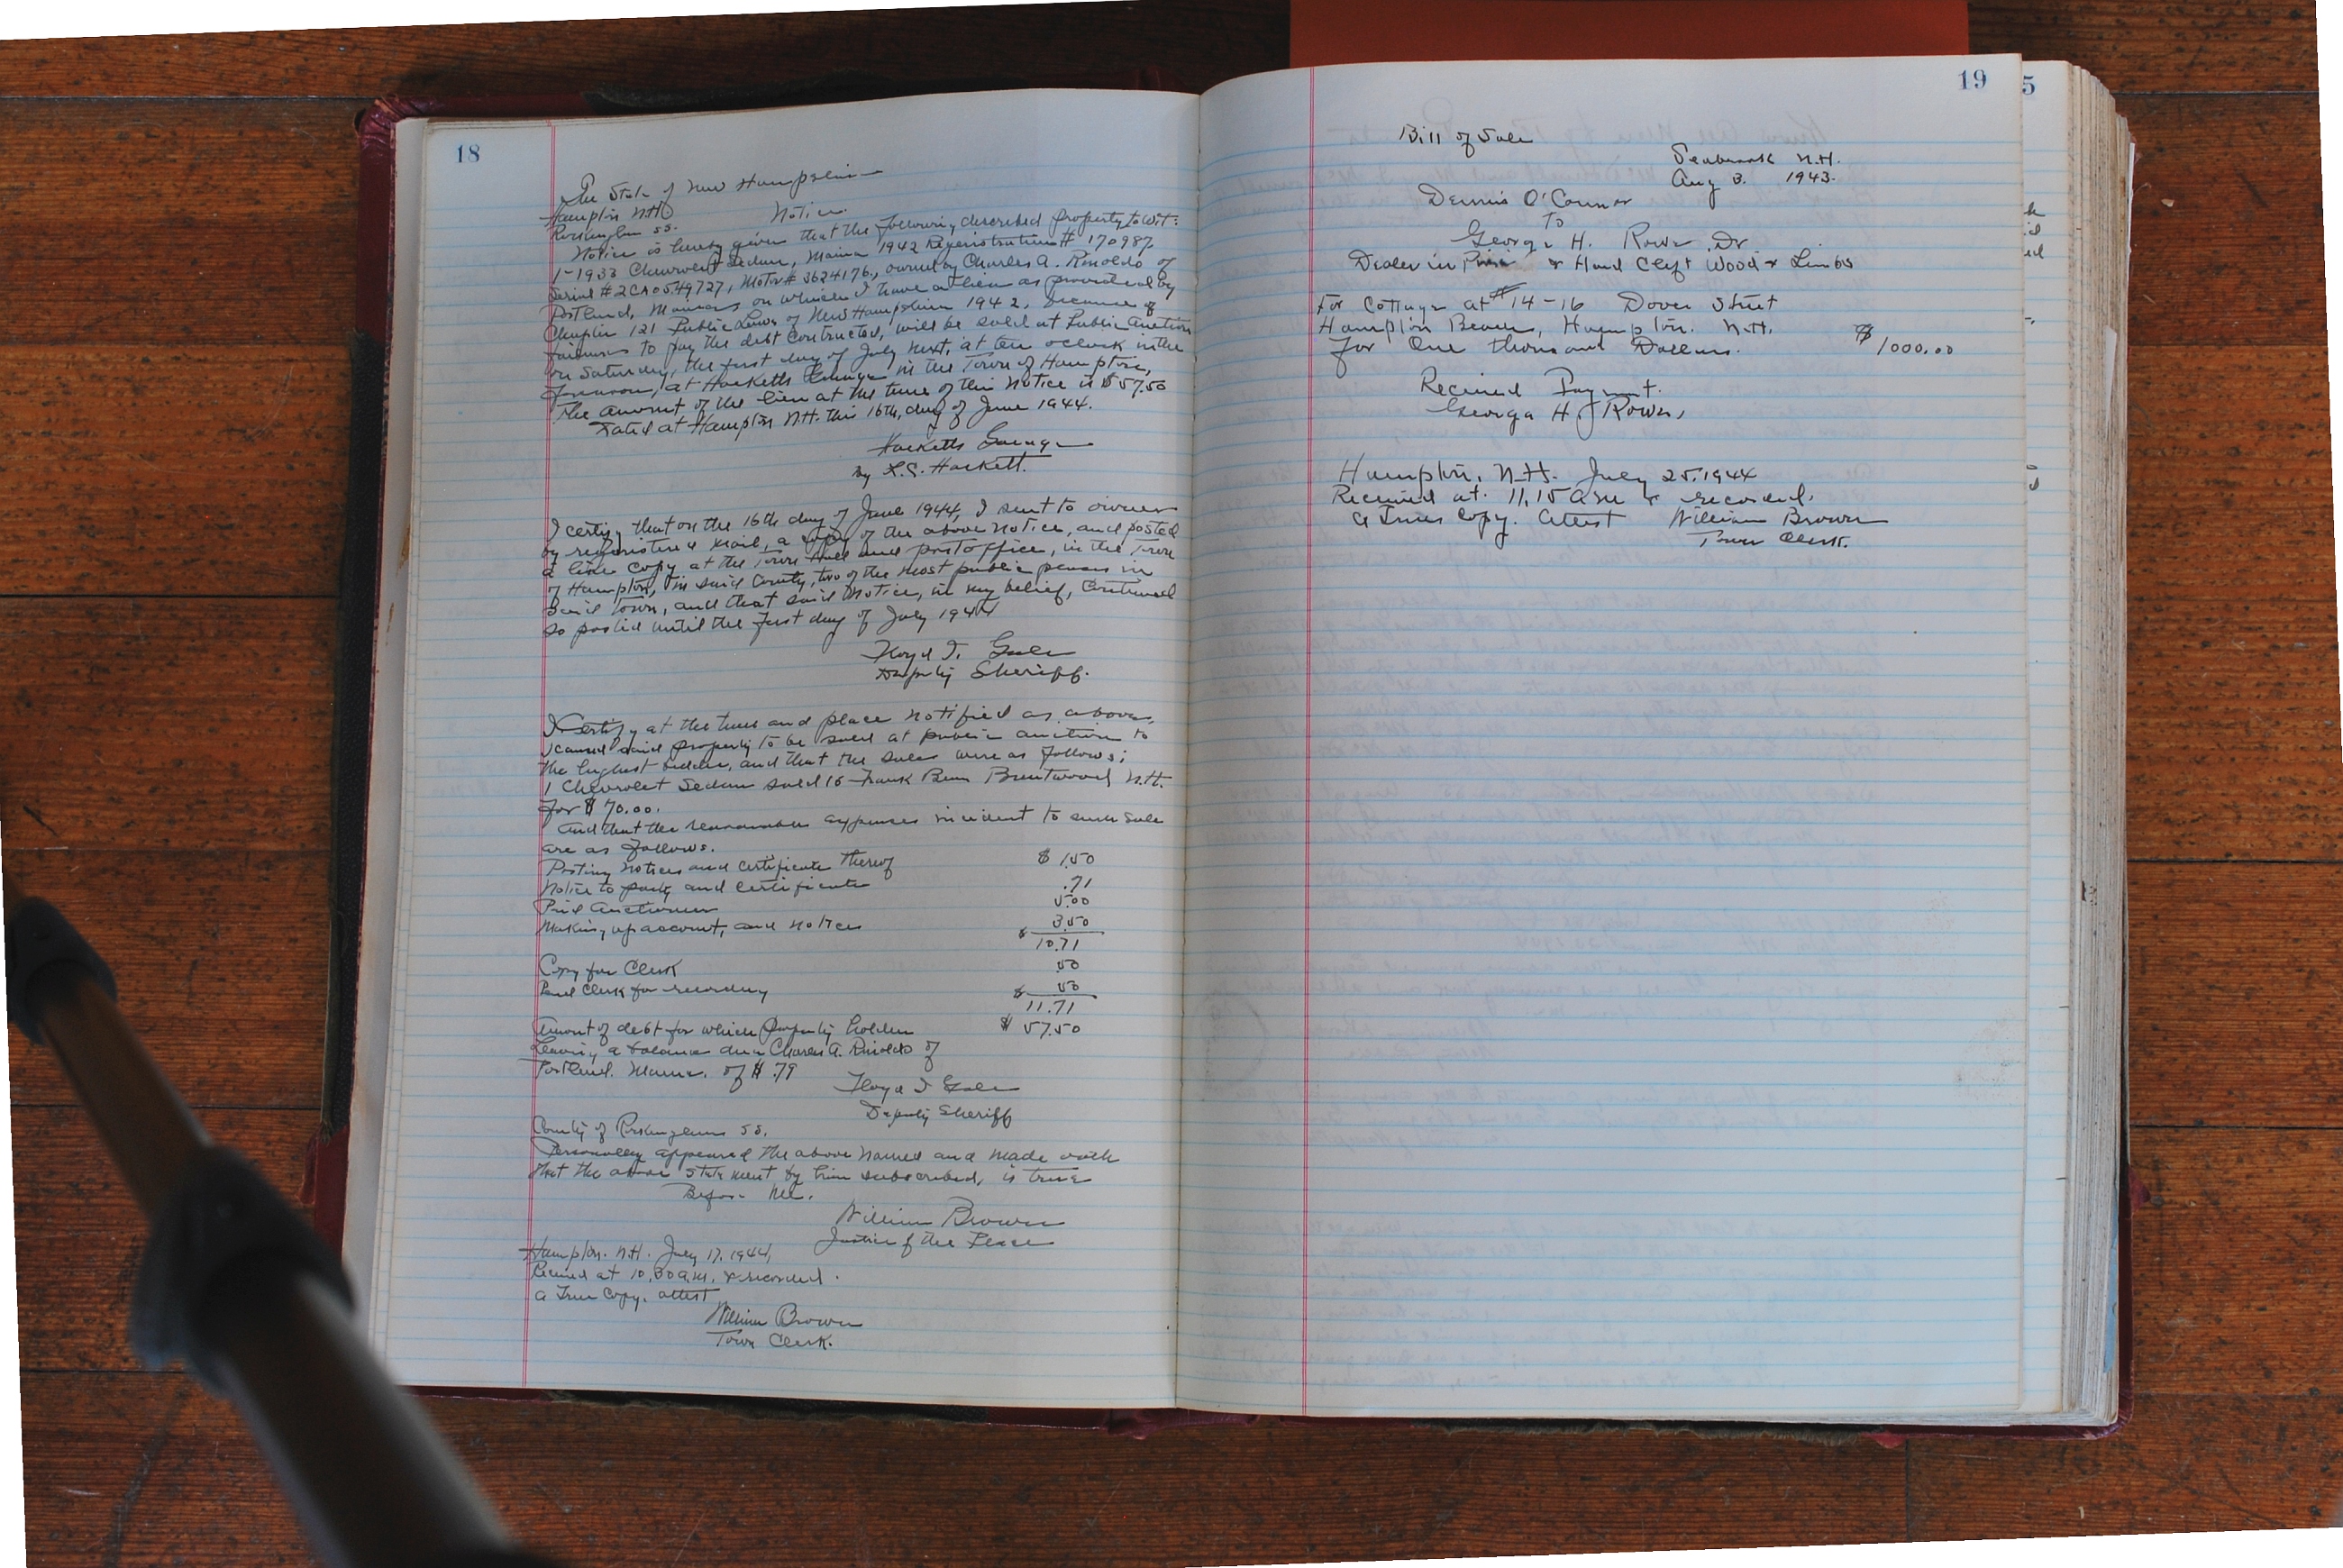 18
The State of New Hampshire
Hampton N.H.
Rockingham ss. Notice.
Notice is hereby given that the following described property to wit:
1-1933 Chevrolet Sedan, Maine 1942 Registration # 170987
Serial # 2CA0549727, Motor # 3624176, owned by Charles A. Rinoldo of
Portland, Maine on which I have a lien as provided by
Chapter 121 Public Laws of New Hampshire 1942, because of
failure to pay the debt contracted, will be sold at Public Auction
on Saturday, the first day of July next, at ten oclock in the
forenoon, at Hacketts Garage in the Town of Hampton,
The amount of the lien at the time of this notice is $57.50
Dated at Hampton N.H. this 16th, day of June 1944.
Hacketts Garage
By L.S. Hackett.
I certify that on the 16th day of June 1944, I sent to owner
by registered mail, a copy of the above notice, and posted
a like copy at the Town Hall and post office, in the Town
of Hampton, in said County, two of the most public places in
said Town, and that said notice, in my belief, continued
so posted until the first day of July 1944
Floyd I. Gale
Deputy Sheriff.
I Certify at the time and place notified as above,
I caused said property to be sold at public auction to
the highest bidder, and that the sales were as follows;
1 Chevrolet Sedan sold to Frank Bean Brentwood N.H.
for $70.00.
and that the reasonable expenses incident to such sale
are as follows.
Posting notices and certificate thereof $ 1.50
Notice to party and certificate .71
Paid Auctioneer 5.00
Making up account, and notices 3.50
$ 10.71
Copy for Clerk .50
Paid Clerk for recording .50
$ 11.71
Amount of debt for which property holden $ 57.50
Leaving a balance due Charles A. Rinoldo of
Portland. Maine. of $ .79
Floyd I Gale
Deputy Sheriff
County of Rockingham ss.
Personally appeared the above named and made oath
that the above statement by him subscribed, is true
Before me.
William Brown
Justice of the Peace
Hampton. N.H. July 17, 1944,
Received at 10,30 a.m. & recorded.
a True Copy. attest
William Brown
Town Clerk.
19
Bill of Sale
Seabrook N.H.
Aug 3. 1943.
Dennis O'Connor
To
George H. Rowe Dr
Dealer in & Hard Cleft Wood & Limbs
For Cottage at #14-16 Dover Street
Hampton Beach, Hampton. N.H.
for One thousand Dollars. $1000.00
Received Payment.
George H. Rowe,
Hampton, N.H. July 25, 1944
Received at 11,15 a.m & recorded.
a True Copy. Attest William Brown
Town Clerk.
5